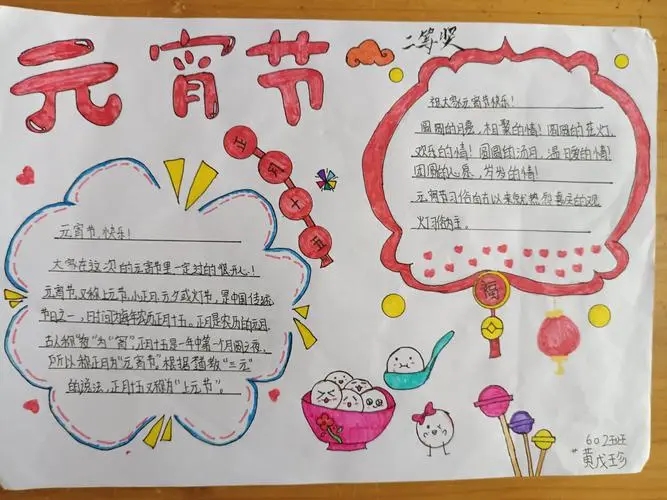 元宵节
二等奖
正月十五
祝大家元宵节快乐！
圆圆的月亮，相聚的情！圆圆的花灯，
欢乐的情！圆圆的汤月，温暖的情！
团圆的心意，岁岁的情！
元宵节习俗自古以来就以热 喜庆的观
灯习俗为主。
福
元宵节，快乐！
大家在这次的元宵节里一定过的很开心！
元宵节，又称上元节，小正月，元夕或灯节，是中国传统
节日之一，日时间为每年农历正月十五。正月是农历的元月，
古人称“夜”为“宵”，正月十五是一年中第一个月圆之夜，
所以称正月为“元宵节”根据 教“三元”
的说法，正月十五又称为“上元节”。
602班
黄戊珍